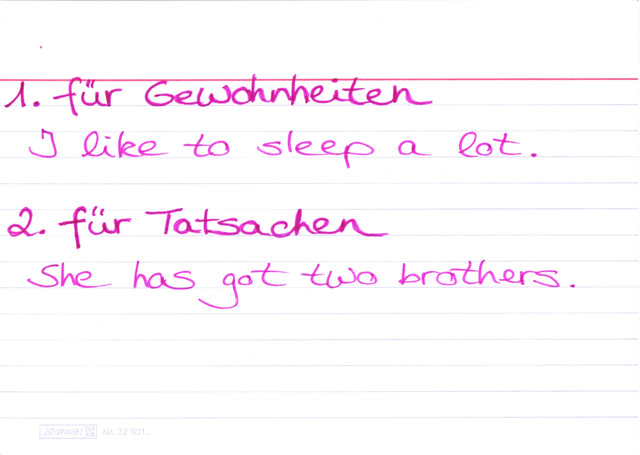 1. für Gewohnheiten
I like to sleep a lot.
2. für Tatsachen
She has got two brothers.